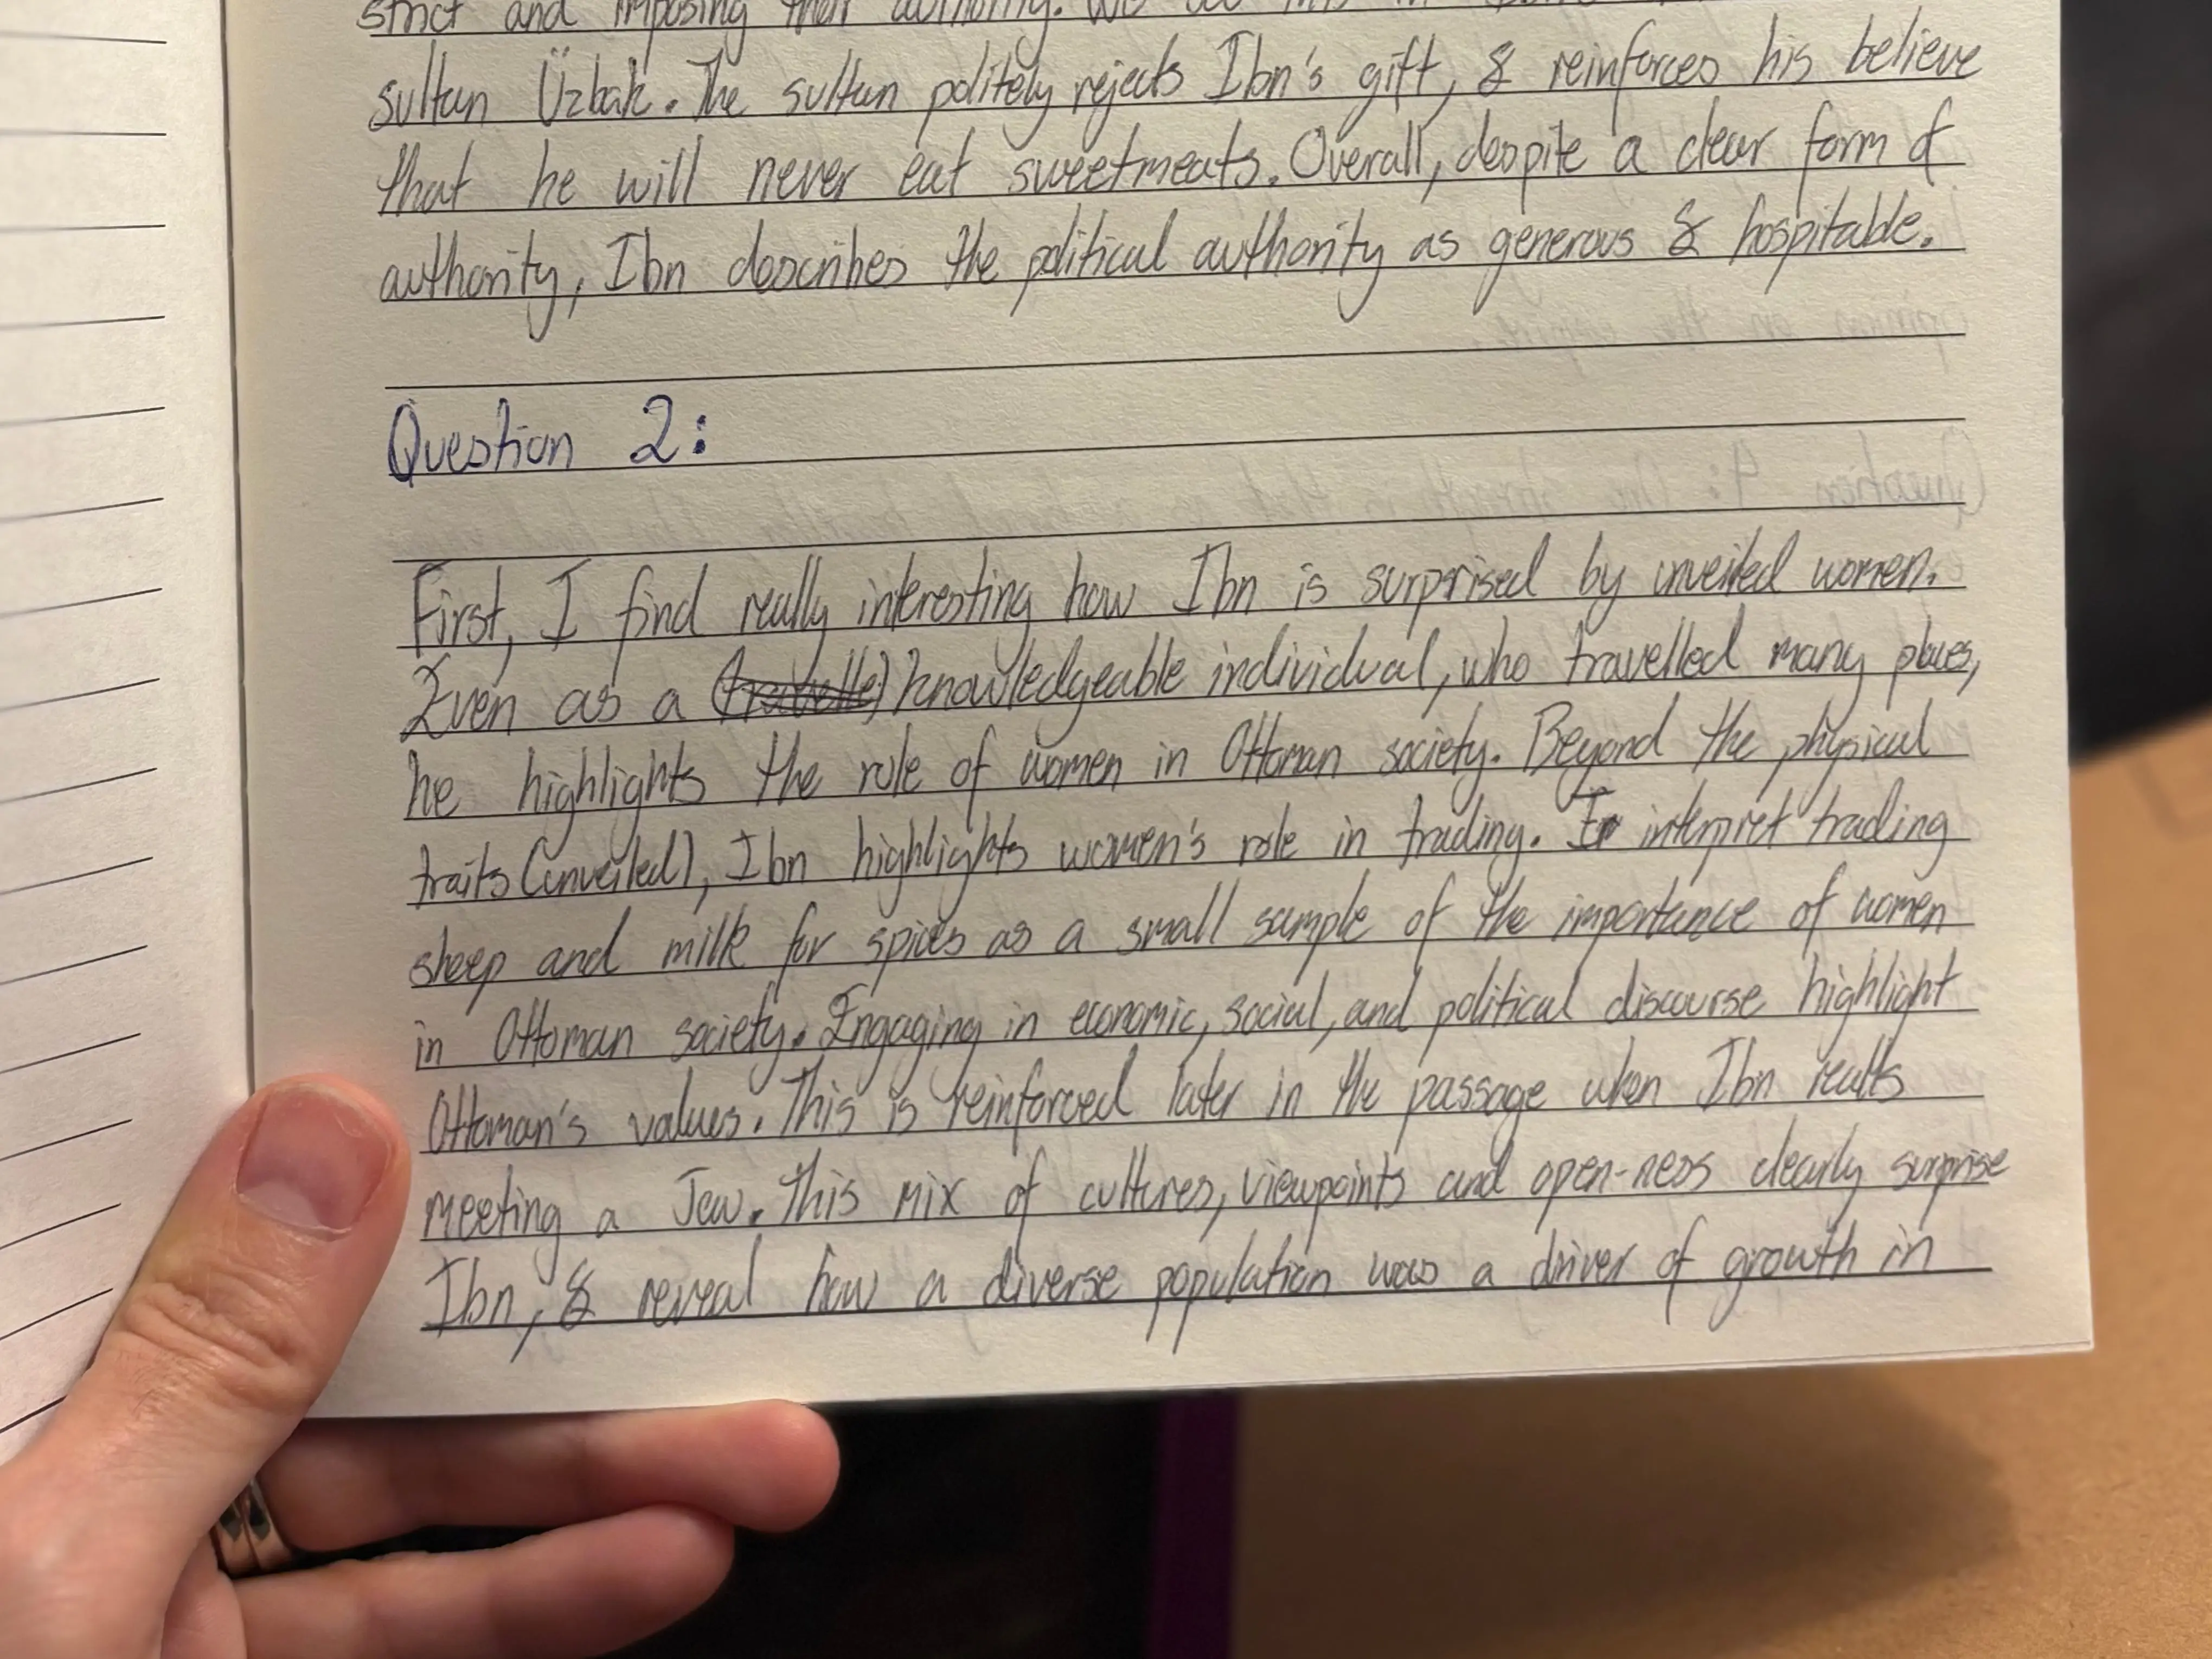 strict and imposing their authority. We see this in
sultan Üzbak. The sultan politely rejects Ibn's gift, & reinforces his believe
that he will never eat sweetmeats. Overall, despite a clear form of
authority, Ibn describes the political authority as generous & hospitable.
Question 2:
First, I find really interesting how Ibn is surprised by unveiled women.
Even as a (travelle) knowledgeable individual, who travelled many places,
he highlights the role of women in Ottoman society. Beyond the physical
traits (unveiled), Ibn highlights women's role in trading. I interpret trading
sheep and milk for spices as a small sample of the importance of women
in Ottoman society. Engaging in economic, social, and political discourse highlight
Ottoman's values. This is reinforced later in the passage when Ibn recalls
meeting a Jew. This mix of cultures, viewpoints and open-ness clearly surprise
Ibn, & reveal how a diverse population was a driver of growth in